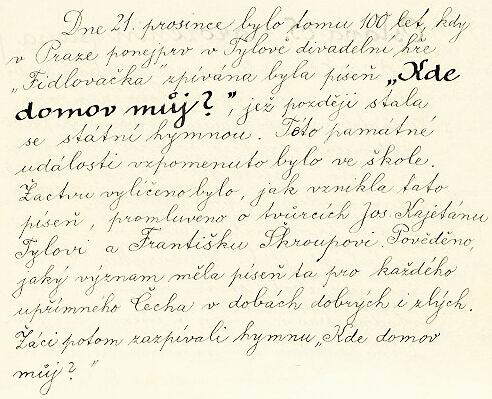 Dne 21. prosince bylo tomu 100 let, kdy
v Praze ponejprv v Tylově divadelní hře
„Fidlovačka" zpívána byla píseň „Kde
domov můj?", jež později stala
se státní hymnou. Této památné
události vzpomenuto bylo ve škole.
Žactvu vylíčeno bylo, jak vznikla tato
píseň, promluveno o tvůrcích Jos. Kajetánu
Tylovi a Františku Škroupovi. Pověděno,
jaký význam měla píseň ta pro každého
upřímného Čecha v dobách dobrých i zlých.
Žáci potom zazpívali hymnu „Kde domov
můj?"